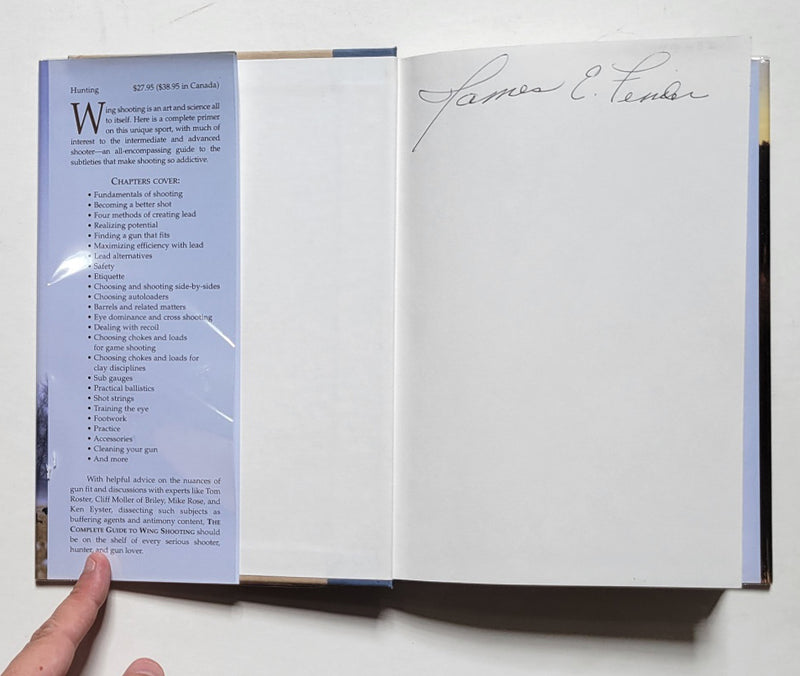 Hunting $27.95 ($38.95 in Canada)
Wing shooting is an art and science all
to itself. Here is a complete primer
on this unique sport, with much of
interest to the intermediate and advanced
shooter—an all-encompassing guide to the
subtleties that make shooting so addictive.
CHAPTERS COVER:
• Fundamentals of shooting
• Becoming a better shot
• Four methods of creating lead
• Realizing potential
• Finding a gun that fits
• Maximizing efficiency with lead
• Lead alternatives
• Safety
• Etiquette
• Choosing and shooting side-by-sides
• Choosing autoloaders
• Barrels and related matters
• Eye dominance and cross shooting
• Dealing with recoil
• Choosing chokes and loads
for game shooting
• Choosing chokes and loads for
clay disciplines
• Sub gauges
• Practical ballistics
• Shot strings
• Training the eye
• Footwork
• Practice
• Accessories
• Cleaning your gun
• And more
With helpful advice on the nuances of
gun fit and discussions with experts like Tom
Roster, Cliff Moller of Briley, Mike Rose, and
Ken Eyster, dissecting such subjects as
buffering agents and antimony content, THE
COMPLETE GUIDE TO WING SHOOTING should
be on the shelf of every serious shooter,
hunter, and gun lover.
James E.